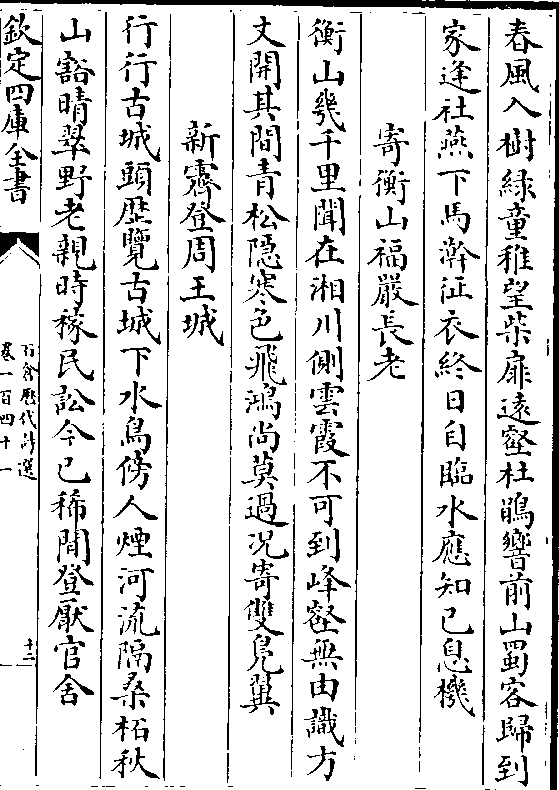 春風入樹綠童稚望柴扉遠壑杜鵑響前山蜀客歸到
家逢社燕下馬澣征衣終日自臨水應知已息機
寄衡山福嚴長老
衡山幾千里聞在湘川側雲霞不可到峰壑無由識方
丈開其間青松隱寒色飛鴻尚莫過況寄雙鳧翼
新霽登周王城
行行古城頭歴覽古城下水鳥傍人煙河流隔桑柘秋
山豁晴翠野老親時稼民訟今已稀間登厭官舍
欽定四庫全書
石倉歴代詩選
卷一百四十一
十二